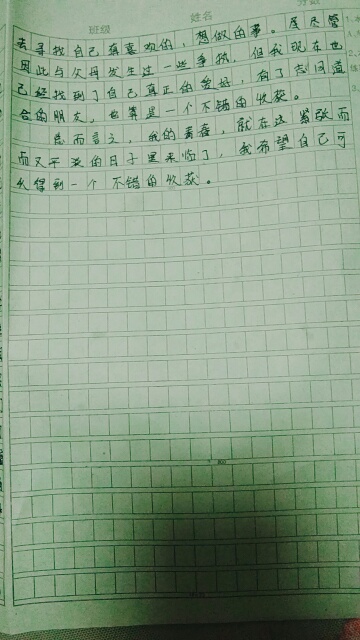 分数
班级 姓名
去寻找自己真喜欢的，想做的事。虽尽管
因此与父母发生过一些争执，但我现在也
已经找到了自己真正的爱好，有了志同道
合的朋友，也算是一个不错的收获。
总而言之，我的青春，就在这紧张而
而又平淡的日子里来临了，我希望自己可
以得到一个不错的收获。